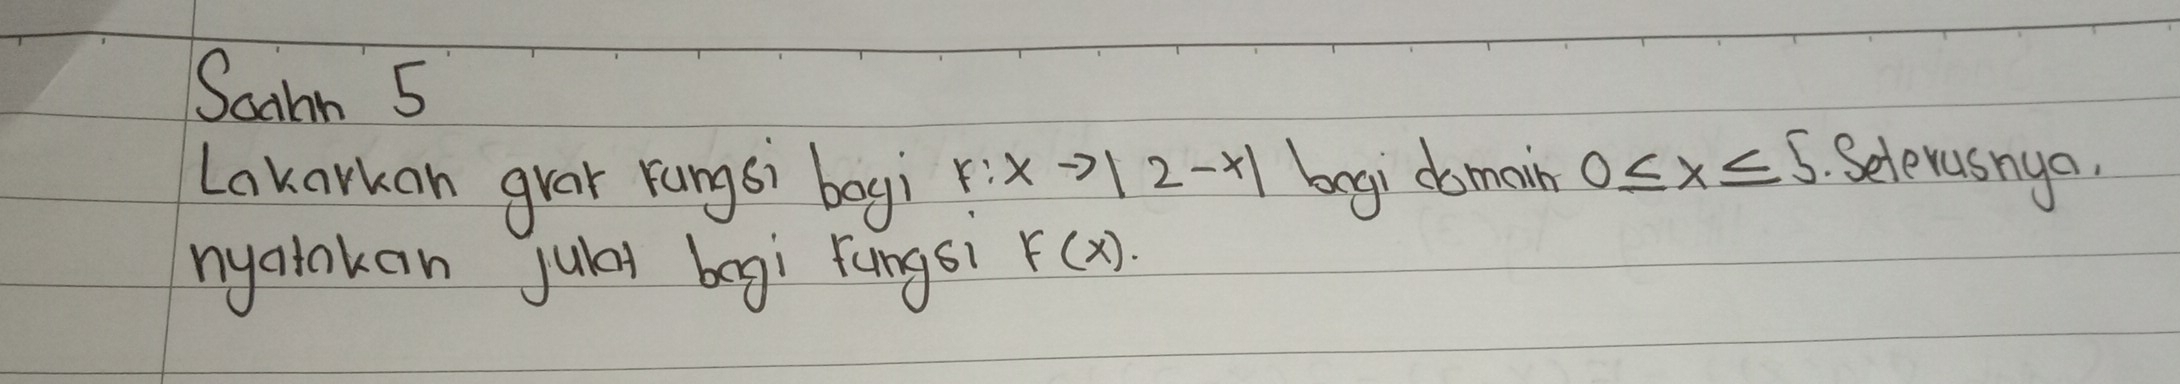 Soalan 5
Lakarkan graf fungsi bagi f:x → |2-x| bagi domain 0 ≤ x ≤ 5. Seterusnya,
nyatakan julat bagi fungsi f(x).